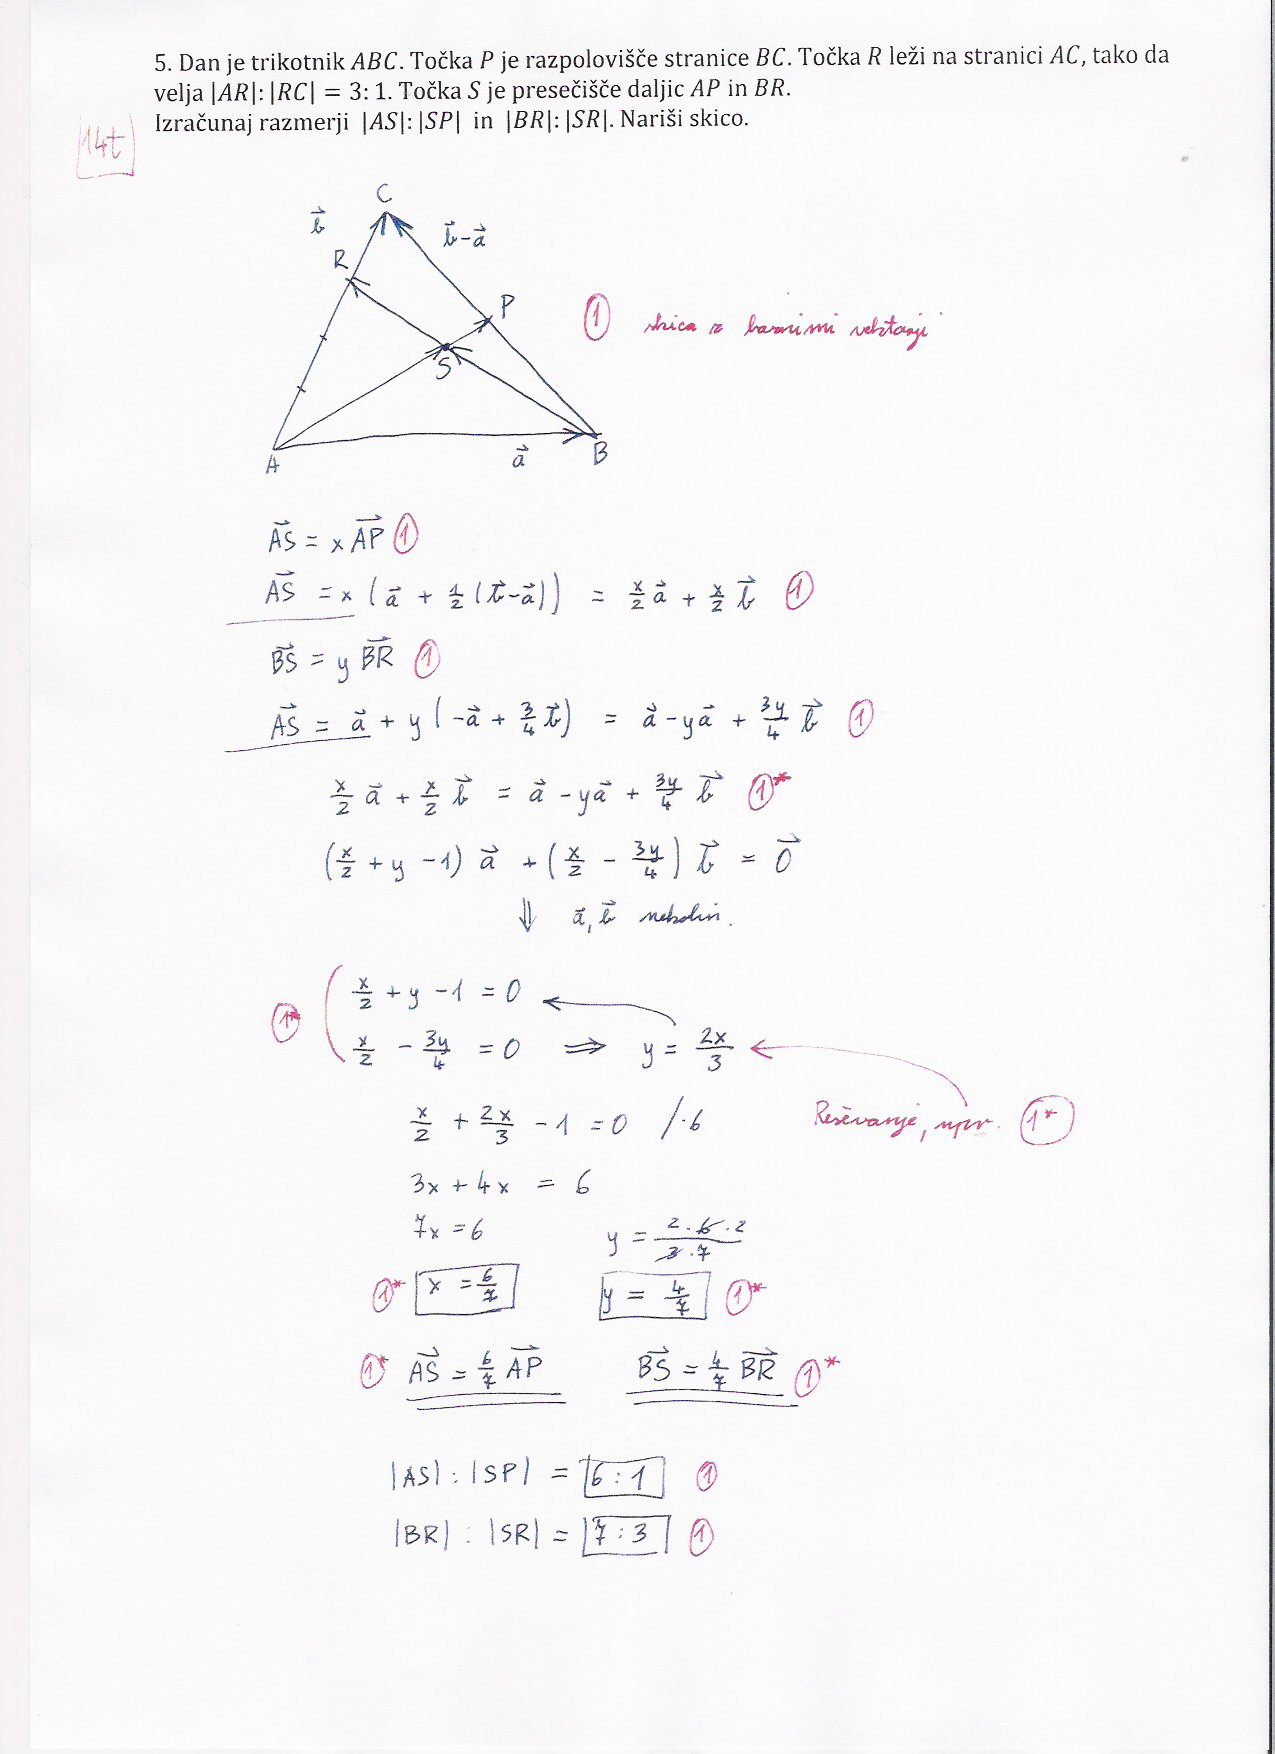 5. Dan je trikotnik ABC. Točka P je razpolovišče stranice BC. Točka R leži na stranici AC, tako da
velja |AR|: |RC| = 3: 1. Točka S je presečišče daljic AP in BR.
Izračunaj razmerji |AS|: |SP| in |BR|: |SR|. Nariši skico.
14t
C
b⃗
b⃗-a⃗
R
P
1 skica z baznimi vektorji
S
A
a⃗
B
AS⃗ = x AP⃗ 1
AS⃗ = x (a⃗ + 1/2 (b⃗-a⃗)) = x/2 a⃗ + x/2 b⃗ 1
BS⃗ = y BR⃗ 1
AS⃗ = a⃗ + y (-a⃗ + 3/4 b⃗) = a⃗ - ya⃗ + 3y/4 b⃗ 1
x/2 a⃗ + x/2 b⃗ = a⃗ - ya⃗ + 3y/4 b⃗ 1*
(x/2 + y - 1) a⃗ + (x/2 - 3y/4) b⃗ = 0⃗
⇓ a⃗, b⃗ nekolin.
x/2 + y - 1 = 0
1* x/2 - 3y/4 = 0 ⟹ y = 2x/3
x/2 + 2x/3 - 1 = 0 /·6 Reševanje, npr. 1*
3x + 4x = 6
7x = 6 y = 2·6·2/3·7
1* x = 6/7 y = 4/7 1*
1* AS⃗ = 6/7 AP⃗ BS⃗ = 4/7 BR⃗ 1*
|AS| : |SP| = 6 : 1 1
|BR| : |SR| = 7 : 3 1